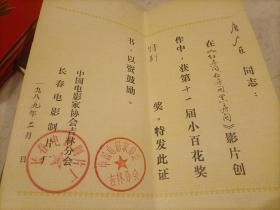 同志：
在《
》影片创
作中，获第十一届小百花奖
特别
奖。特发此证
书，以资鼓励。
中国电影家协会吉林分会
长春电影制片厂
一九八九年二月 日
长春电影制片厂
中国电影家协会
吉林分会